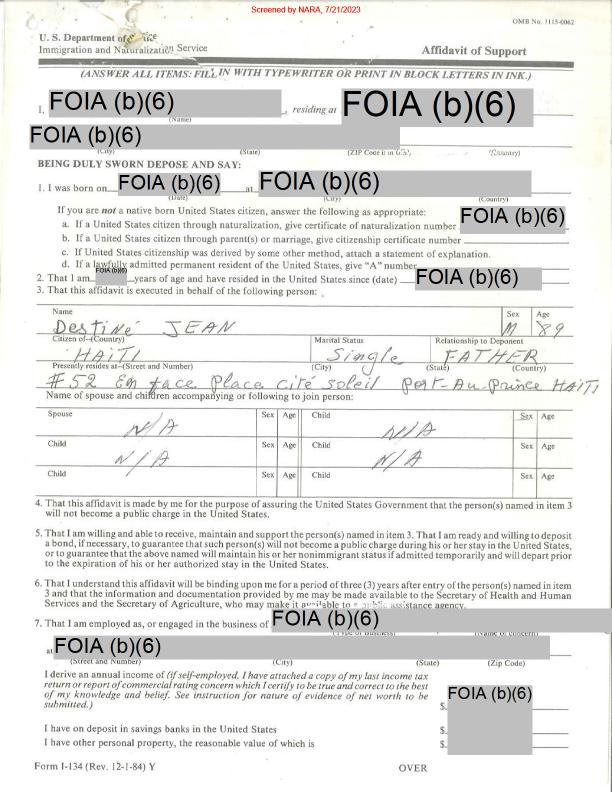 Screened by NARA, 7/21/2023
OMB No. 1115-0062
U. S. Department of
Immigration and Naturalization Service
Affidavit of Support
(ANSWER ALL ITEMS: FILL IN WITH TYPEWRITER OR PRINT IN BLOCK LETTERS IN INK.)
I, FOIA (b)(6) , residing at FOIA (b)(6)
(Name)
FOIA (b)(6)
(City) (State) (ZIP Code if in U.S.) (Country)
BEING DULY SWORN DEPOSE AND SAY:
1. I was born on FOIA (b)(6) at FOIA (b)(6)
(Date) (City) (Country)
If you are not a native born United States citizen, answer the following as appropriate:
a. If a United States citizen through naturalization, give certificate of naturalization number FOIA (b)(6)
b. If a United States citizen through parent(s) or marriage, give citizenship certificate number
c. If United States citizenship was derived by some other method, attach a statement of explanation.
d. If a lawfully admitted permanent resident of the United States, give "A" number
2. That I am FOIA (b)(6) years of age and have resided in the United States since (date) FOIA (b)(6)
3. That this affidavit is executed in behalf of the following person:
Name Sex Age
Destiné JEAN M 89
Citizen of--(Country) Marital Status Relationship to Deponent
HAITI Single FATHER
Presently resides at--(Street and Number) (City) (State) (Country)
#52 En face Placa cité soleil Port-Au-Prince HAITI
Name of spouse and children accompanying or following to join person:
Spouse Sex Age Child Sex Age
N/A N/A
Child Sex Age Child Sex Age
N/A N/A
Child Sex Age Child Sex Age
4. That this affidavit is made by me for the purpose of assuring the United States Government that the person(s) named in item 3
will not become a public charge in the United States.
5. That I am willing and able to receive, maintain and support the person(s) named in item 3. That I am ready and willing to deposit
a bond, if necessary, to guarantee that such person(s) will not become a public charge during his or her stay in the United States,
or to guarantee that the above named will maintain his or her nonimmigrant status if admitted temporarily and will depart
prior to the expiration of his or her authorized stay in the United States.
6. That I understand this affidavit will be binding upon me for a period of three (3) years after entry of the person(s) named in item
3 and that the information and documentation provided by me may be made available to the Secretary of Health and Human
Services and the Secretary of Agriculture, who may make it available to a public assistance agency.
7. That I am employed as, or engaged in the business of FOIA (b)(6)
(Type of Business) (Name of concern)
at FOIA (b)(6)
(Street and Number) (City) (State) (Zip Code)
I derive an annual income of (if self-employed, I have attached a copy of my last income tax
return or report of commercial rating concern which I certify to be true and correct to the best
of my knowledge and belief. See instruction for nature of evidence of net worth to be
submitted.) $ FOIA (b)(6)
I have on deposit in savings banks in the United States $
I have other personal property, the reasonable value of which is $
Form I-134 (Rev. 12-1-84) Y OVER